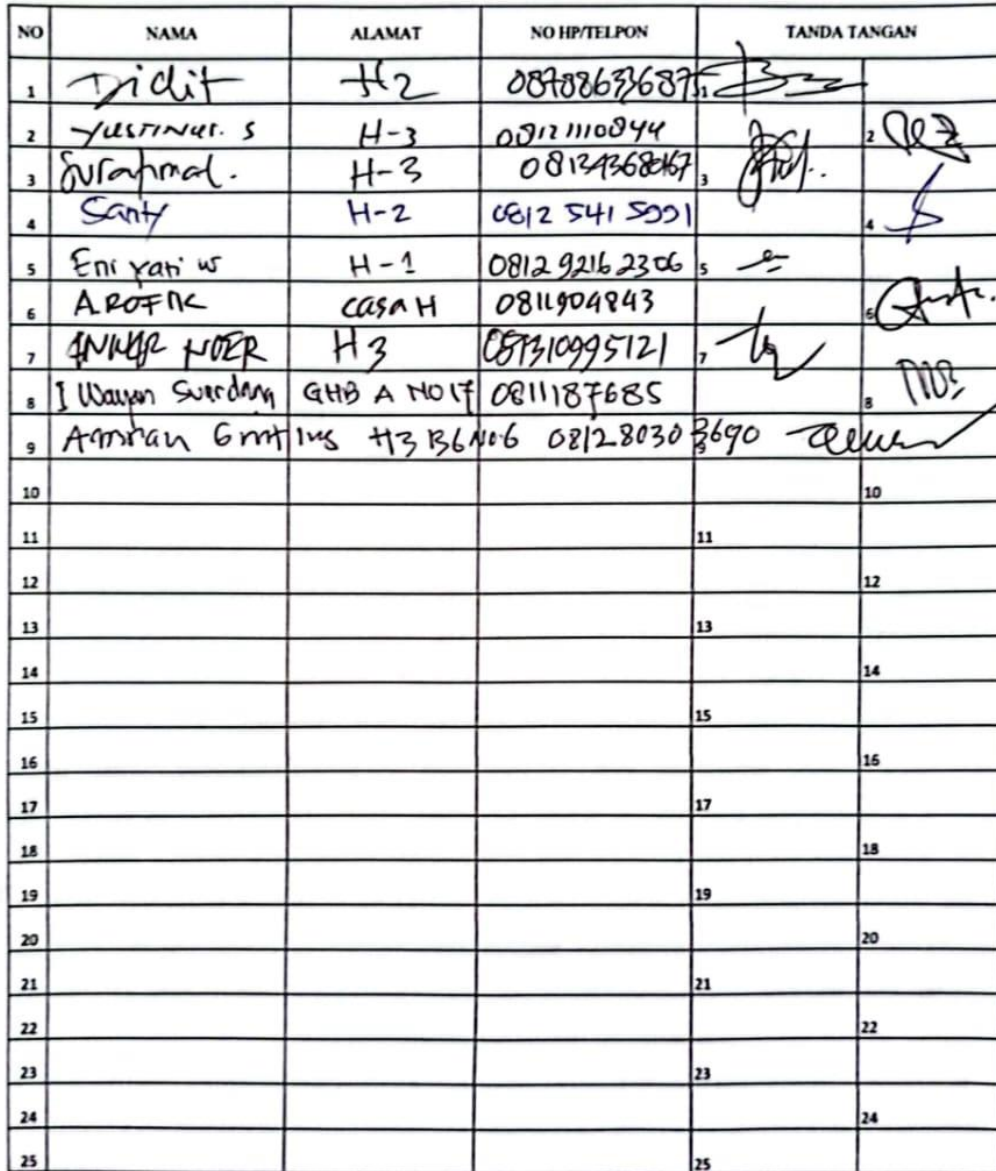 NO NAMA ALAMAT NO HP/TELPON TANDA TANGAN
1 Didit H2 087886336875 1
2 Yustinur. S H-3 08121110844 2
3 Surafimal. H-3 081343680167 3
4 Santy H-2 0812 541 5991 4
5 Eni Yati W H-1 0812 9216 2306 5
6 AROFIK CASA H 0811904843 6
7 ANWAR NOER H3 087310995121 7
8 I Wayan Suardana GHB A NO 17 0811187685 8
9 Amran Ginting H3 B6 No.6 08128030 3690 9
10 10
11 11
12 12
13 13
14 14
15 15
16 16
17 17
18 18
19 19
20 20
21 21
22 22
23 23
24 24
25 25